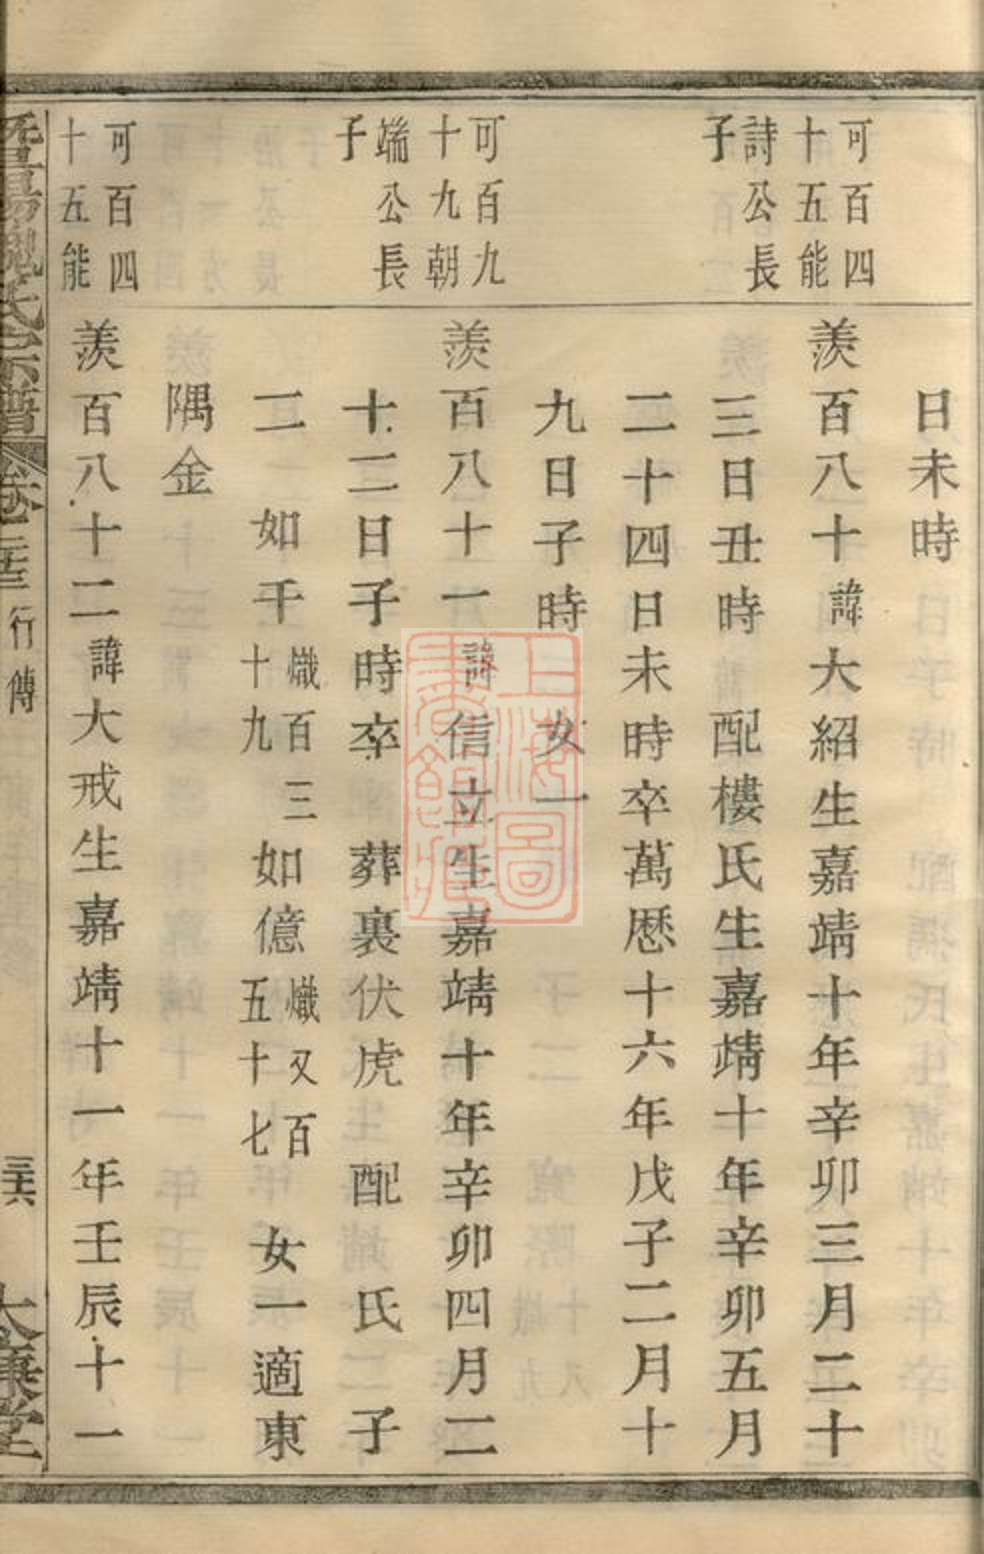 日未時
可百四
十五能
詩公長
子
羨百八十諱大紹生嘉靖十年辛卯三月二十
三日丑時配樓氏生嘉靖十年辛卯五月
二十四日未時卒萬厯十六年戊子二月十
九日子時女一
可百九
十九朝
端公長
子
羨百八十一諱信立生嘉靖十年辛卯四月二
十二日子時卒葬裏伏虎配氏子
二如千熾百三十九如億熾又百五十七女一適東
隅金
可百四
十五能
羨百八十二諱大戒生嘉靖十一年壬辰十一
暨陽魏氏宗譜卷之二十三行傳三十六大廉堂
上海圖書館藏